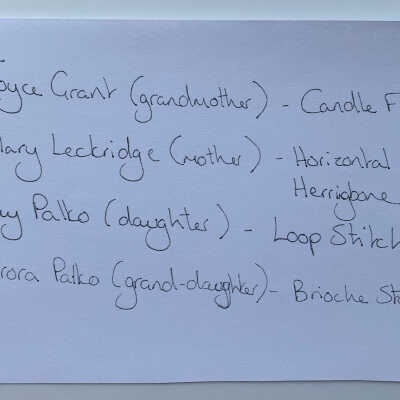 oyce Grant (grandmother) - Candle F
lary Leckridge (mother) - Horizontal
Herringbone
y Palko (daughter) - Loop Stitch
rora Palko (grand-daughter) - Brioche St